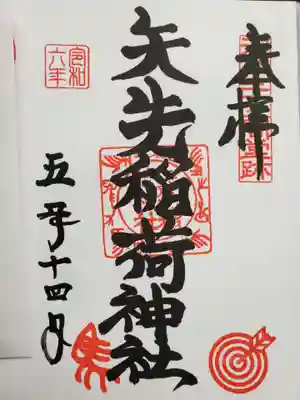 奉拝
矢先稲荷神社
令和
六年
五月十四日